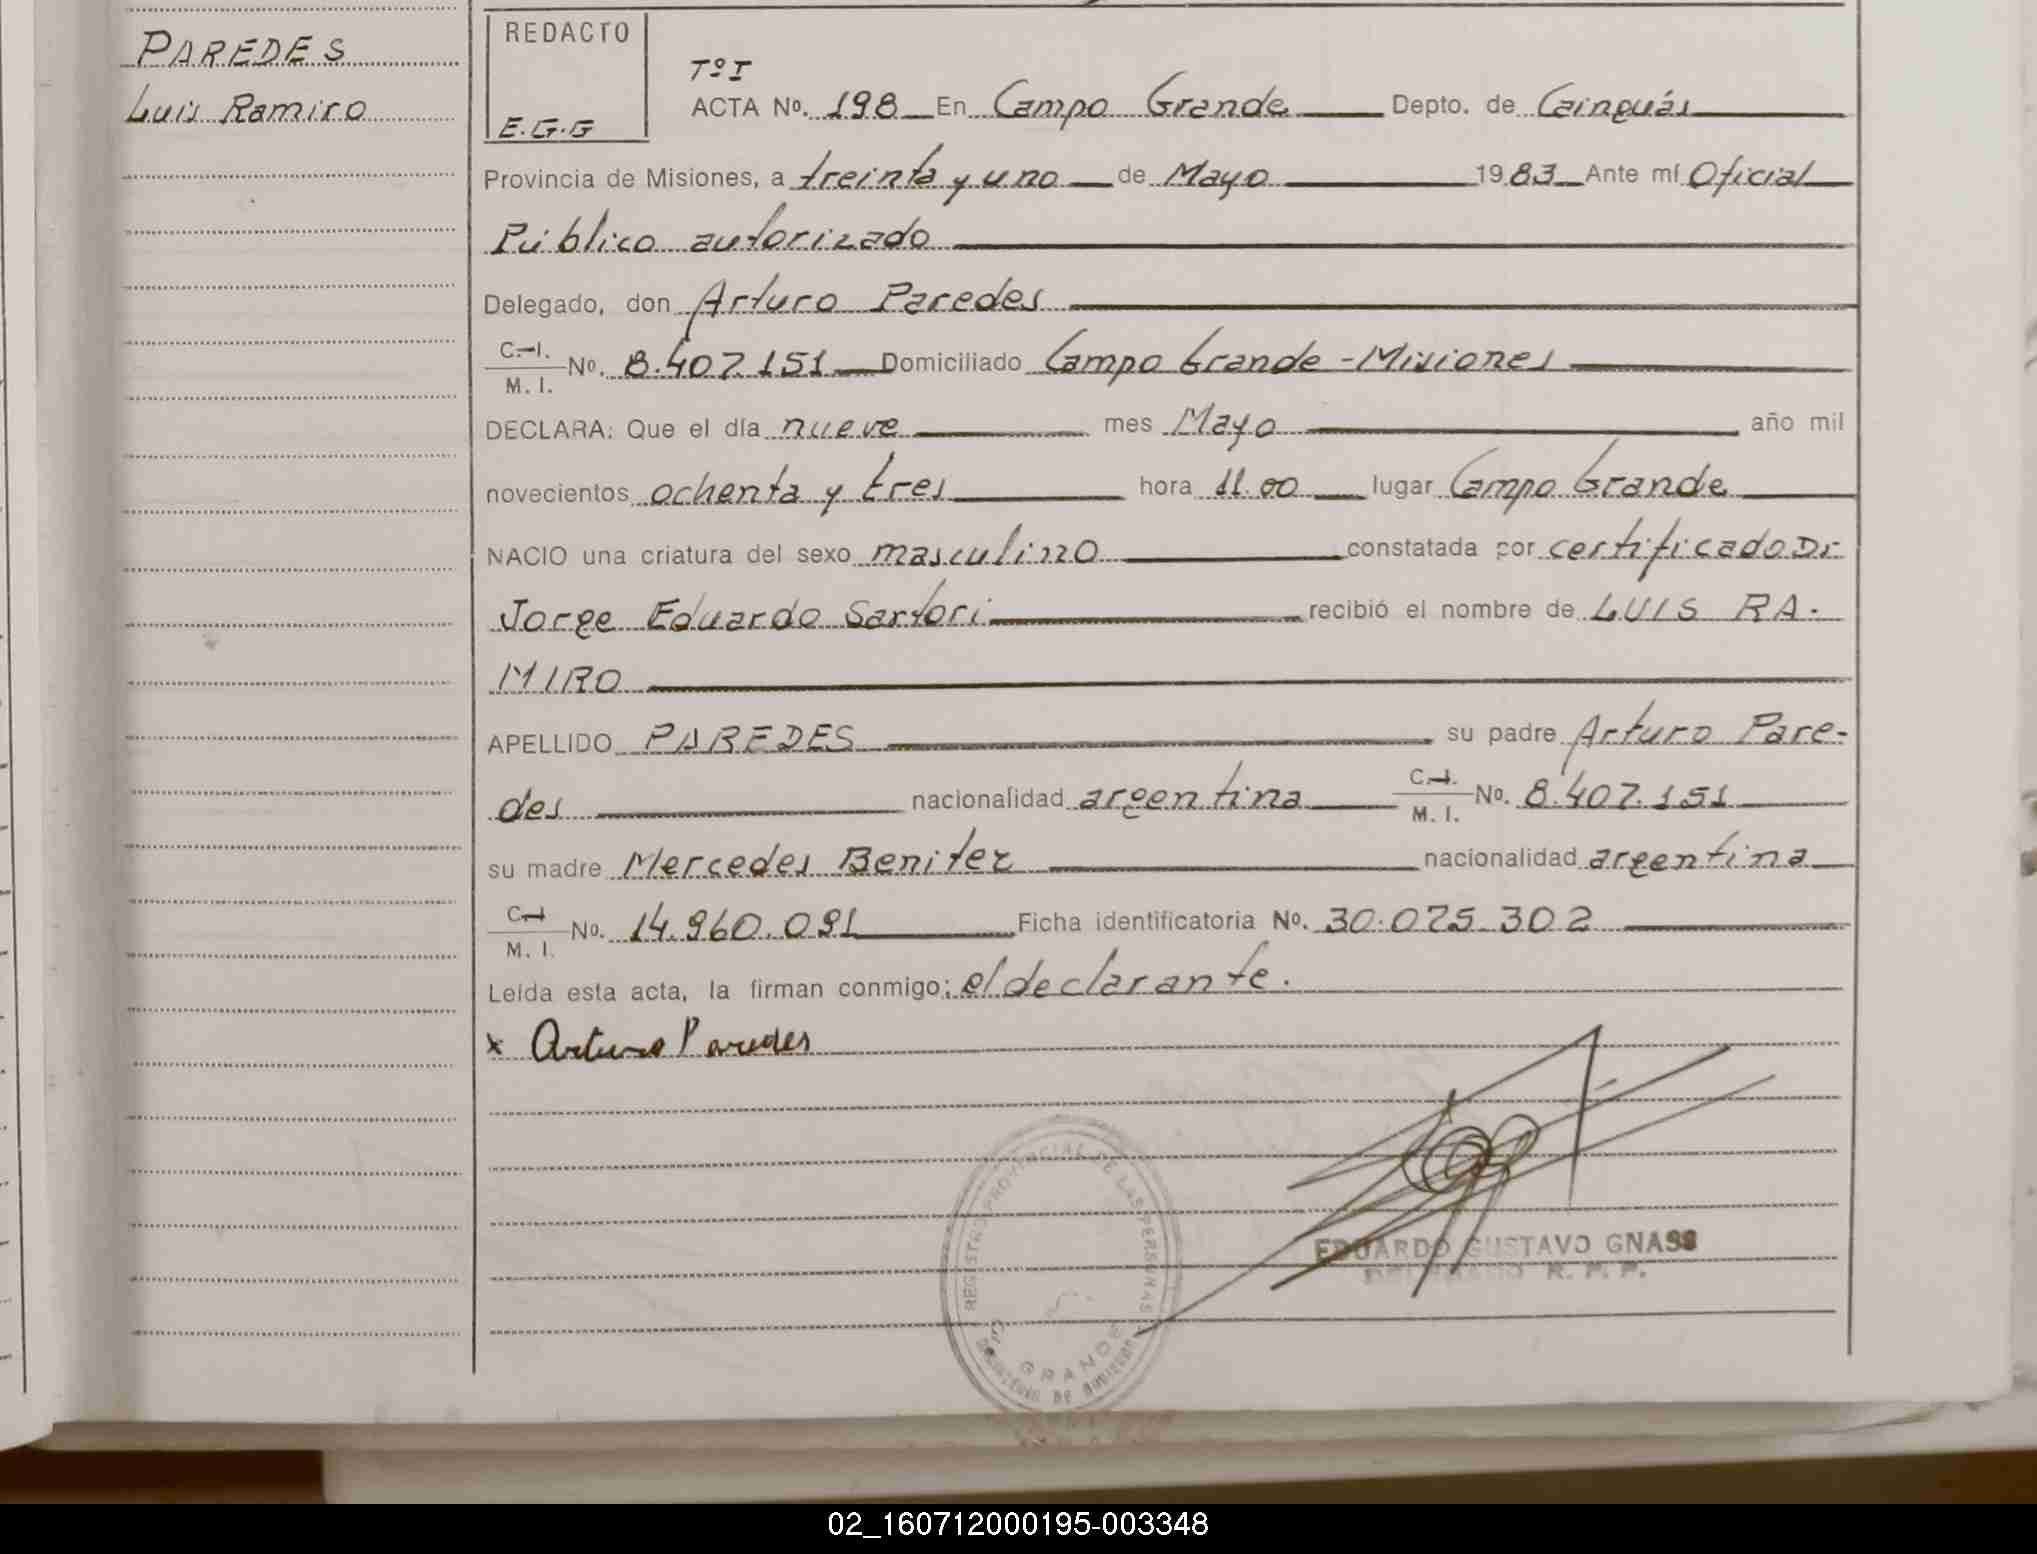 PAREDES
Luis Ramiro
REDACTO
E.G.G
Tº I
ACTA Nº. 198 En Campo Grande Depto. de Cainguás
Provincia de Misiones, a treinta y uno de Mayo 1983 Ante mí Oficial
Público autorizado
Delegado, don Arturo Paredes
C. I.
M. I. Nº. 8.407.151 Domiciliado Campo Grande - Misiones
DECLARA: Que el día nueve mes Mayo año mil
novecientos ochenta y tres hora 11.00 lugar Campo Grande
NACIO una criatura del sexo masculino constatada por certificado Dr
Jorge Eduardo Sartori recibió el nombre de LUIS RA-
MIRO
APELLIDO PAREDES su padre Arturo Pare-
des nacionalidad argentina C. I. M. I. Nº. 8.407.151
su madre Mercedes Benitez nacionalidad argentina
C. I.
M. I. Nº. 14.960.091 Ficha identificatoria Nº. 30.075.302
Leída esta acta, la firman conmigo: el declarante.
x Arturo Paredes
REGISTRO PROVINCIAL DE LAS PERSONAS
GRANDE
EDUARDO GUSTAVO GNASS
DELEGADO R. P. P.
02_160712000195-003348